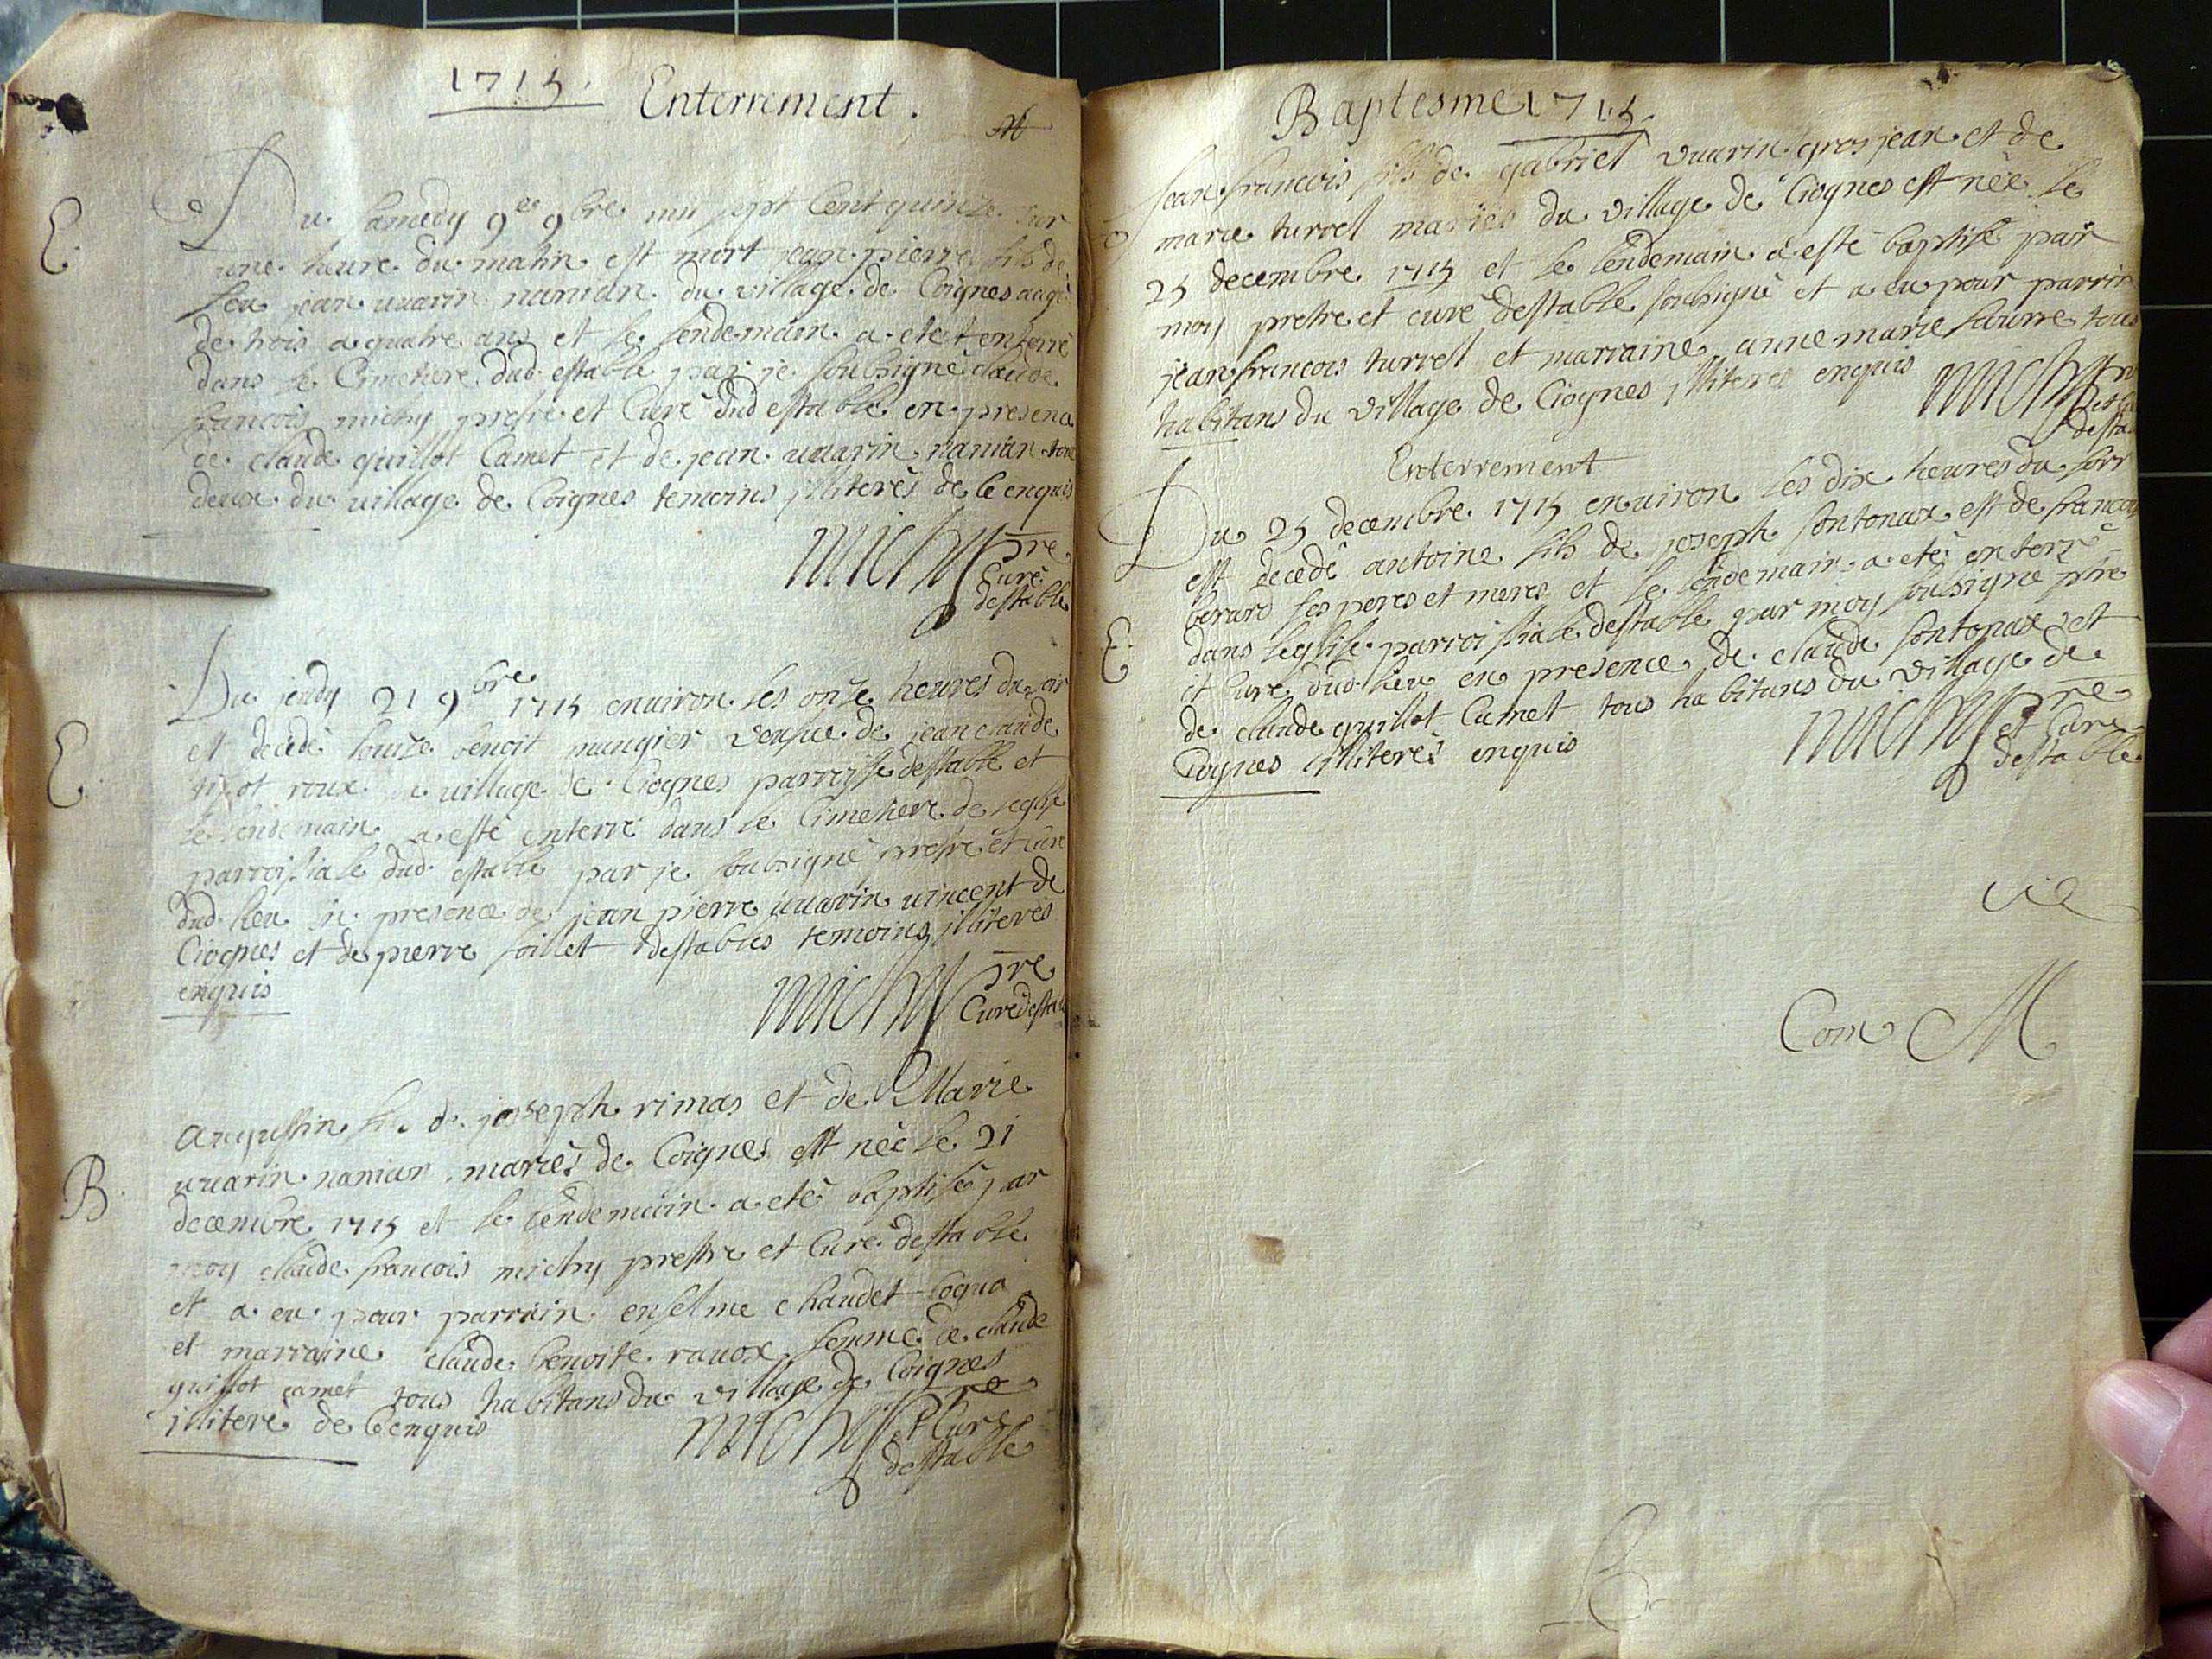 1715. Enterrement.
E. Du samedy 9e 9bre mil sept cent quinze sur
une heure du matin est mort jean pierre fils de
feu jean uuarin nanian du village de Ciognes aagé
de trois a quatre ans et le lendemain a eté enterré
dans le Cimetiere dud estable par je soubsigné claude
francois michy prestre et Curé dud estable en presence
de claude guillot Camet et de jean uuarin nanian tous
deux du village de Coignes temoins illiterés de ce enquis
michy pre
Curé
destable
E. Du jeudy 21 9bre 1715 enuiron les onze heures du soir
et decedé louize benoit mangier veufue de jean claude
roux village de Ciognes parroisse destable et
le lendemain a esté enterré dans le Cimetiere de leglise
parroissiale dud estable par je soubsigné prestre et curé
dud lieu en presence de jean pierre uuarin uincent de
Ciognes et de pierre soillet destables temoins illiterés
enquis
michy pre
Curé destable
B. Augustin fils de joseph rimas et de Marie
uuarin nanian mariés de Coignes est née le 21
decembre 1715 et le lendemain a eté baptisé par
moy claude francois michy prestre et Curé destable
et a eu pour parrain enselme chaudet
et marraine claude benoite rauox femme de claude
guillot camet tous habitans du village de Coignes
illiteré de ce enquis
michy pre
et Curé
destable
Baptesme 1715.
Jean francois fils de gabriel vuarin grosjean et de
marie turrel mariés du village de Ciognes est née le
25 decembre 1715 et le lendemain a esté baptisé par
moy prestre et curé destable soubsigné et a eu pour parrin
jean francois turrel et marraine anne marie fauvre tous
habitans du village de Ciognes illiteres enquis
michy pre
et Cu
desta
Enterrement
E. Du 25 decembre 1715 enuiron les dix heures du soir
est decedé antoine fils de joseph sontonax est de francois
berard ses peres et meres et le lendemain a eté enterré
dans leglise parroissiale destable par moy soubsigné pre
et Curé dud lieu en presence de claude sontonax et
de claude guillot Camet tous habitans du village de
Ciognes illiterés enquis
michy pre
et Curé
destable
Com M